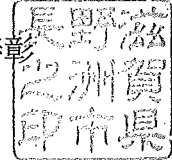 滋賀県
野洲市
長之印
彰